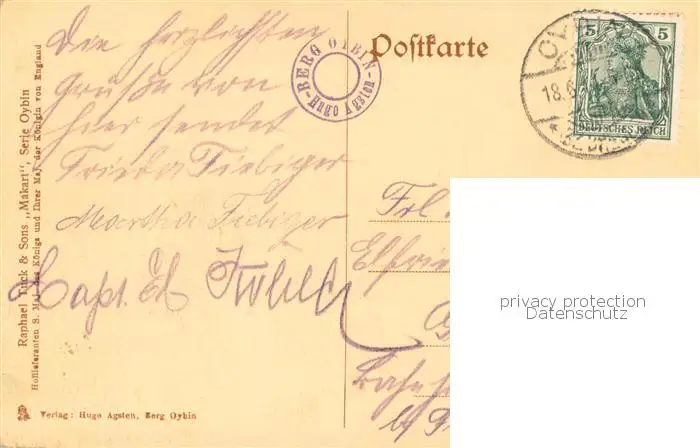 Die herzlichsten
Grüße von
hier sendet
Frieda Fiebiger
Martha Fiebiger
Raphael Tuck & Sons „Makart“, Serie Oybin
Hoflieferanten S. Maj. des Königs und Ihrer Maj. der Königin von England
Verlag: Hugo Agsten, Berg Oybin
BERG OYBIN
Hugo Agsten
Postkarte
5 5
DEUTSCHES REICH
OYBIN
18.6
Frl.
Elfrie
privacy protection
Datenschutz